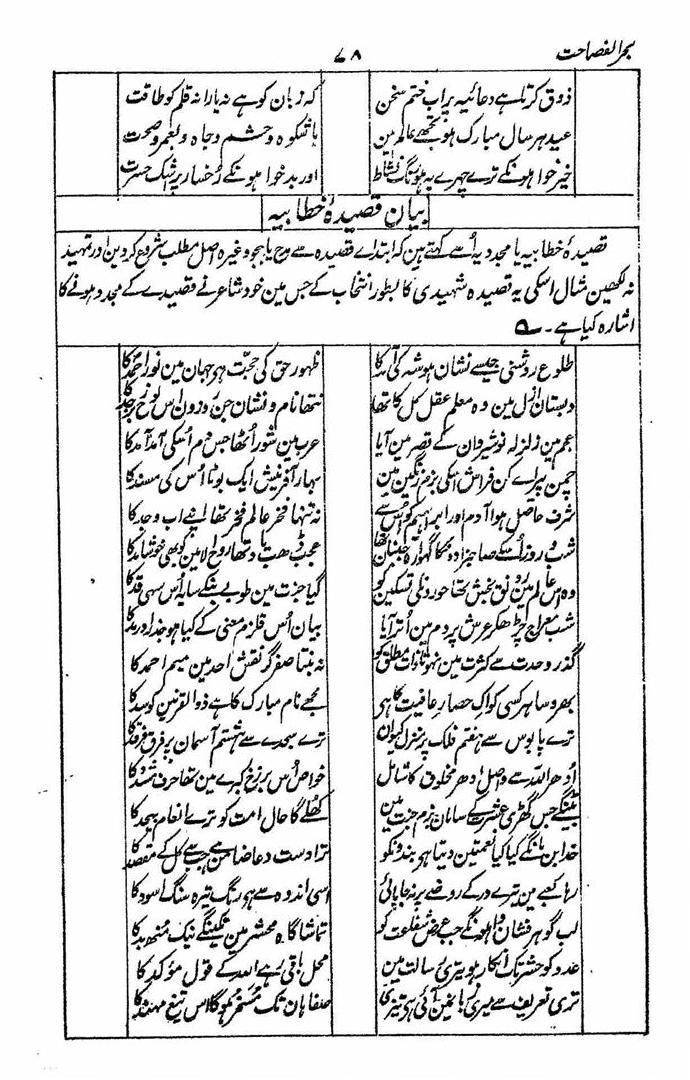 بحر الفصاحت
۷۸
ذوق کرتا ہے دعائیہ پر اب ختم سخن
کہ زبان کو ہے نہ یارا نہ قلم کو طاقت
عید ہر سال مبارک ہو تجھے عالم مین
با شکوہ و حشم و جاہ و بعمر و صحت
خیر خواہونکے ترے چہرے پہ ہو رنگ نشاط
اور بد خواہونکے رخسار پر اشک حسرت
بیان قصیدۂ خطابیہ
قصیدۂ خطابیہ یا مجددیہ اُسے کہتے ہین کہ ابتداے قصیدہ سے مدح یا ہجو وغیرہ اصل مطلب شروع کردین اور تمہید
نہ لکھین مثال اسکی یہ قصیدہ شہیدی کا بطور انتخاب کے جس مین خود شاعر نے قصیدے کے مجدد ہونے کا
اشارہ کیا ہے۔
طلوع روشنی جیسے نشان ہو شہ کی آمد کا
ظہور حق کی حجت ہے جہان مین نور احمد کا
دبستان ازل مین وہ معلم عقل کل کا تھا
نتھا نام و نشان جن روزون اس لوح زبرجد کا
عجم مین زلزلہ نوشیروان کے قصر مین آیا
عرب مین شور اُٹھا جس دم اُسکی آمد آمد کا
چمن پیراے کن فراش اسکی بزم رنگین مین
بہار آفرینش ایک بوٹا اُس کی مسند کا
شرف حاصل ہوا آدم اور ابراہیم کو اُس سے
نہ تنہا فخر عالم فخر تھا اپنے اب و جد کا
شب و روز اُسکے صاحبزادہ کا گہوارہ جنبان تھا
عجب ڈھب یاد تھا روح الامین کو بھی خوشامد کا
وہ اس عالم مین رونق بخش تھا حورونکی تسکین کو
گیا جنت مین طوبے بنکے سایہ اُس سہی قد کا
شب معراج چڑھکر عرش پر دم مین اُتر آیا
بیان اُس قلزم معنی کے کیا ہو جذر اور مد کا
گذر وحدت سے کثرت مین نہوتا ذات مطلق کو
نہ بنتا صفر گر نقش احد مین میم احمد کا
بھروسا ہر کسی کو اک حصار عافیت کا ہی
مجھے نام مبارک کا ہے ذوالقرنین کو سد کا
ترے پابوس سے ہفتم فلک پر منزل کیوان
ترے سجدے سے ہشتم آسمان پر فرق فرقد کا
اُدھر اللہ سے واصل ادھر مخلوق کا شامل
خواص اُس برزخ کبرے مین تھا حرف مشدد کا
بٹینگے جس گھڑی عشرت کے سامان بزم جنت مین
کھلے گا حال امت کو ترے انعام بیحد کا
خدا بن مانگے کیا کیا نعمتین دیتا ہی بندونکو
ترا دست دعا ضامن ہے جب سے کل کے مقصد کا
رہا کعبے مین تیرے در کے روضے پر نہ جا پائی
اسی اندوہ سے ہے رنگ تیرہ سنگ اسود کا
لب گوہر فشان وا ہونگے جب عرض شفاعت کو
تماشا گاہ محشر مین تکینگے نیک منھ بد کا
عدو کو حشر تک انکار ہو تیری رسالت مین
محل باقی رہے اللہ کے قول مؤکد کا
تری تعریف سے میری زبان مین آئی ہی تیزی
صفاہان تک مسخر ہوگا اس تیغ مہند کا